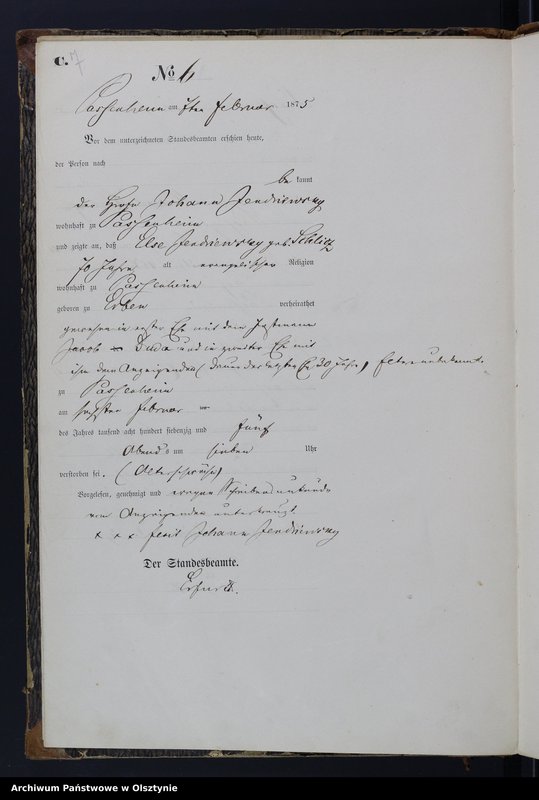 C. 7
No 6
Passenheim am 7ten Februar 1875
Vor dem unterzeichneten Standesbeamten erschien heute,
der Person nach
be kannt
der Johann Jendriewsky
wohnhaft zu Passenheim
und zeigte an, daß Else Jendriewsky geb. Schlitz
70 Jahre alt evangelischer Religion
wohnhaft zu Passenheim
geboren zu Erben verheirathet
gewesen in erster Ehe mit dem Instmann
Jacob Duda und in zweiter Ehe mit
ihm dem Anzeigenden (Dauer der letzten Ehe 20 Jahr) Eltern unbekannt
zu Passenheim
am sechsten Februar
des Jahres tausend acht hundert siebenzig und fünf
Abends um sieben Uhr
verstorben sei. (Altersschwäche)
Vorgelesen, genehmigt und wegen Schreibensunkunde
vom Anzeigenden unterkreuzt
x x x Johann Jendriewsky
Der Standesbeamte.
Archiwum Państwowe w Olsztynie